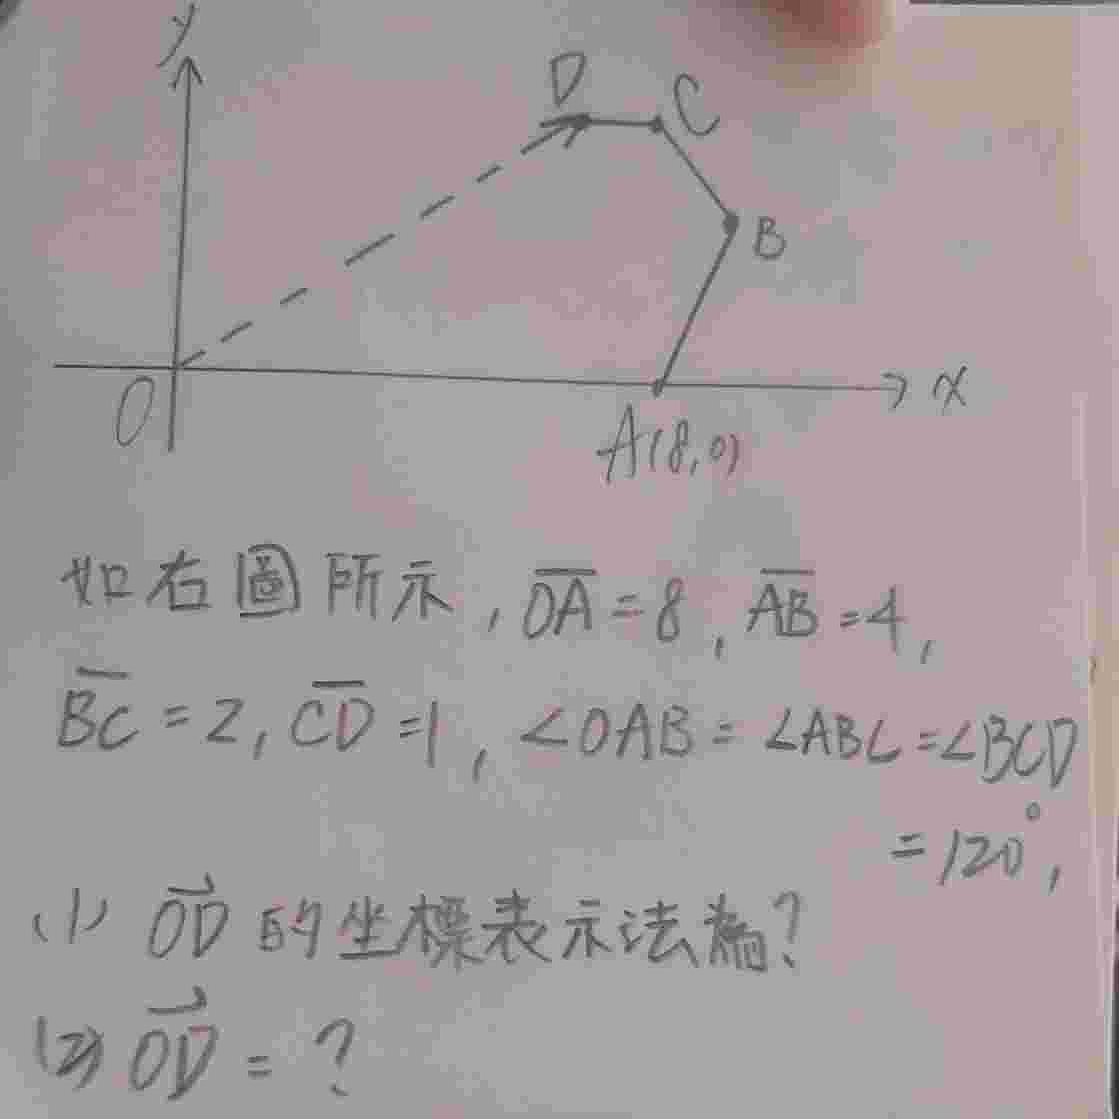 y
D
C
B
O
x
A(8,0)
如右圖所示, \overline{OA}=8, \overline{AB}=4,
\overline{BC}=2, \overline{CD}=1, ∠OAB=∠ABC=∠BCD
=120°,
(1) \overrightarrow{OD} 的坐標表示法為?
(2) \overrightarrow{OD}=?